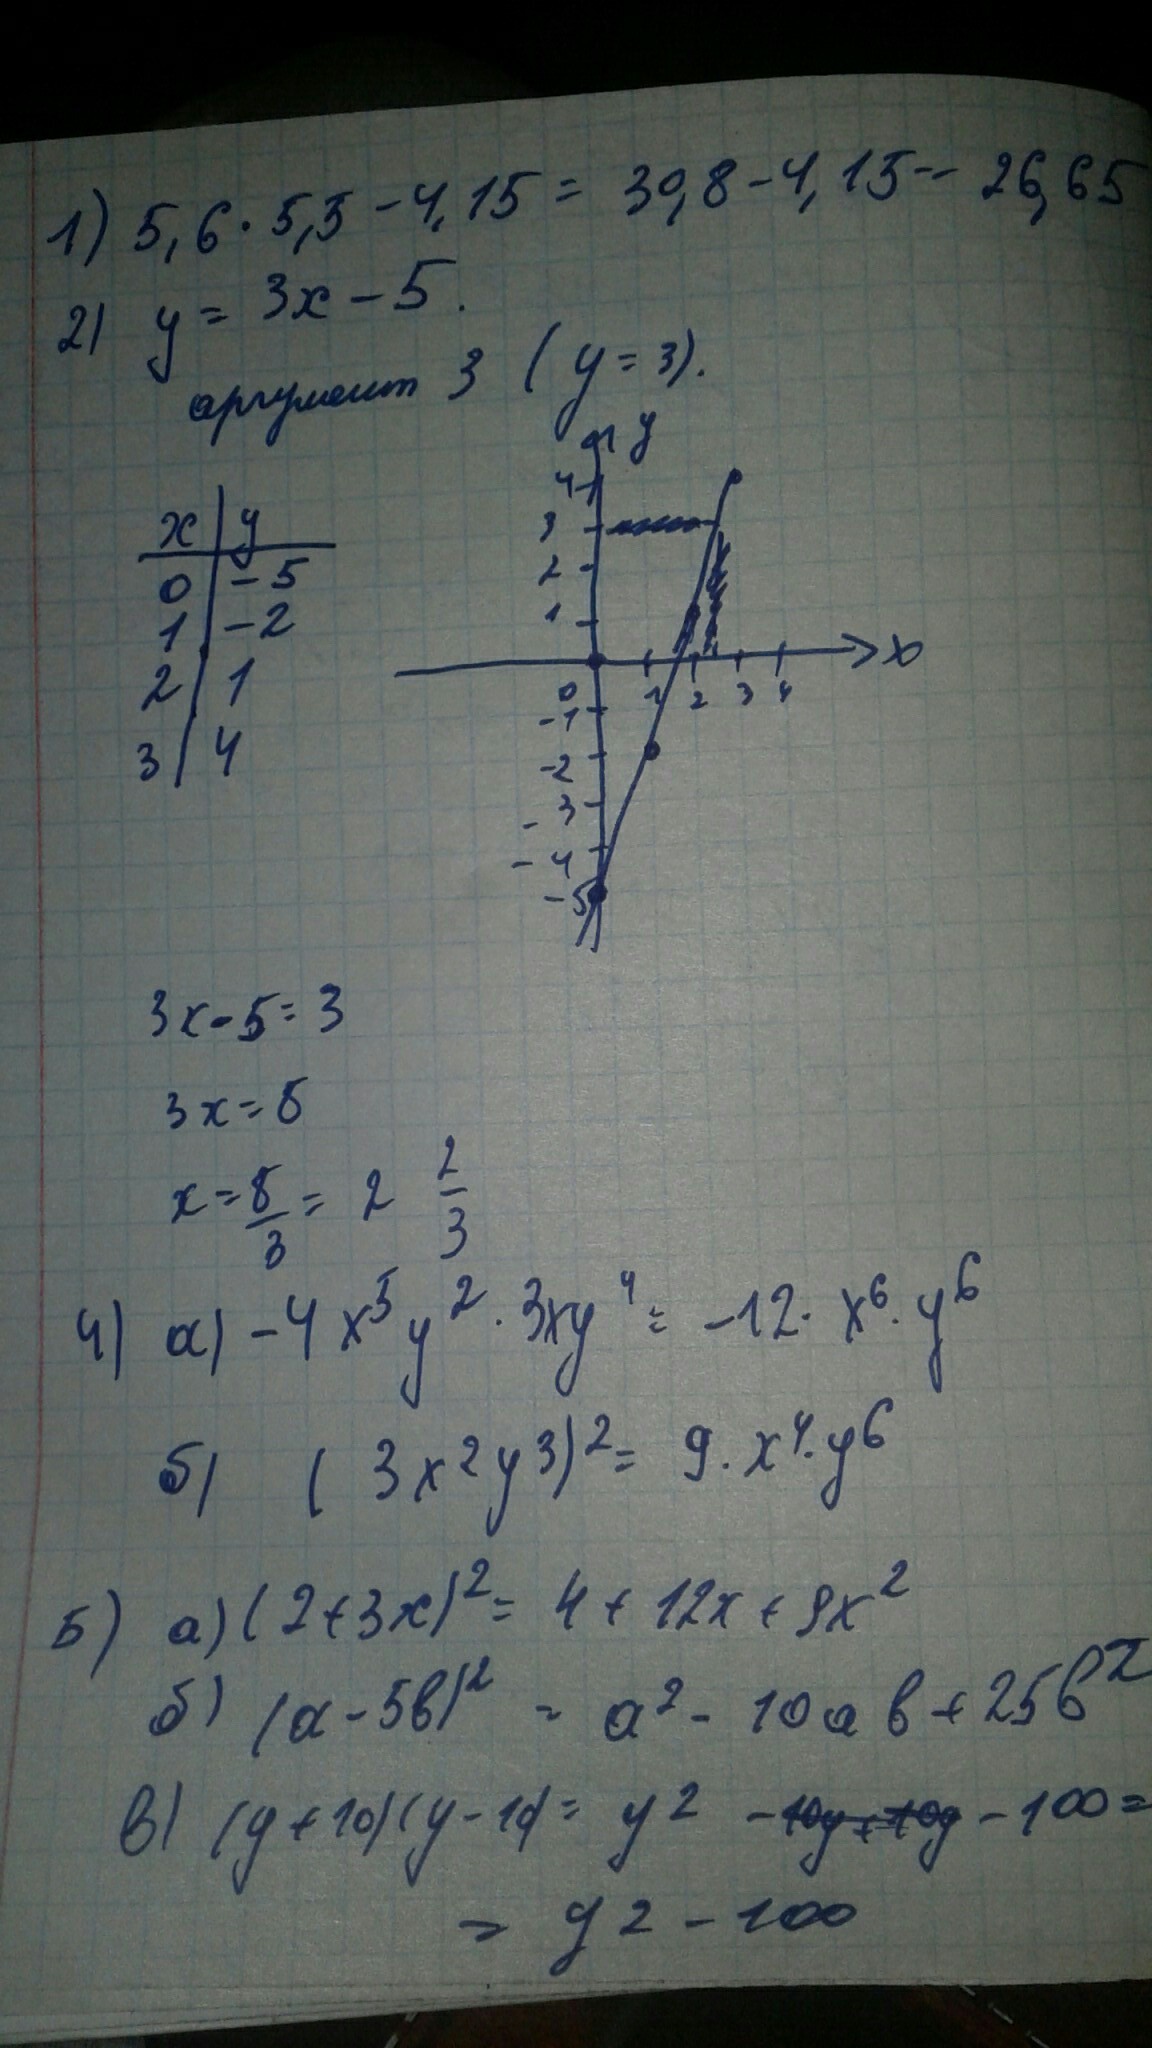 1) 5,6 · 5,5 - 4,15 = 30,8 - 4,15 = 26,65
2) y = 3x - 5.
аргумент 3 (y = 3).
x | y
0 | -5
1 | -2
2 | 1
3 | 4
y
4
3
2
1
0 1 2 3 4 x
-1
-2
-3
-4
-5
3x - 5 = 3
3x = 8
x = 8/3 = 2 2/3
4) а) -4x⁵y² · 3xy⁴ = -12 · x⁶ · y⁶
б) (3x²y3)² = 9 · x⁴ · y⁶
5) а) (2 + 3x)² = 4 + 12x + 9x²
б) (a - 5b)² = a² - 10ab + 25b²
в) (y + 10)(y - 10) = y² - 10y + 10y - 100 =
= y2 - 100